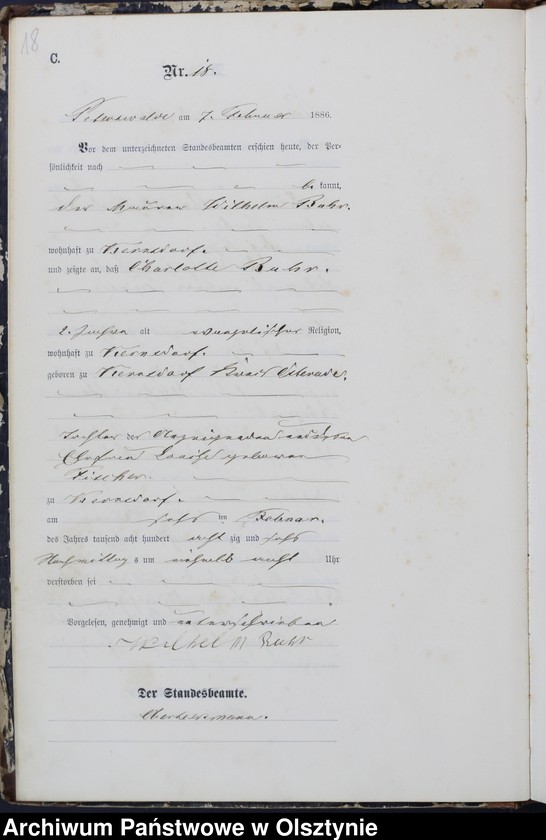 18
C.
Nr. 18.
am 7. Februar 1886.
Vor dem unterzeichneten Standesbeamten erschien heute, der Per-
sönlichkeit nach
be kannt,
der Maurer Wilhelm Buhr.
wohnhaft zu Kernsdorf.
und zeigte an, daß Charlotte Buhr.
2 Jahre alt evangelischer Religion,
wohnhaft zu Kernsdorf.
geboren zu Kernsdorf Kreis Osterode.
Tochter des Anzeigenden und seiner
Ehefrau Louise geborenen
Fischer.
zu Kernsdorf.
am sechs ten Februar.
des Jahres tausend acht hundert acht zig und sechs
Nachmittag s um acht Uhr
verstorben sei
Vorgelesen, genehmigt und unterschrieben
Wilhelm Buhr
Der Standesbeamte.
Archiwum Państwowe w Olsztynie